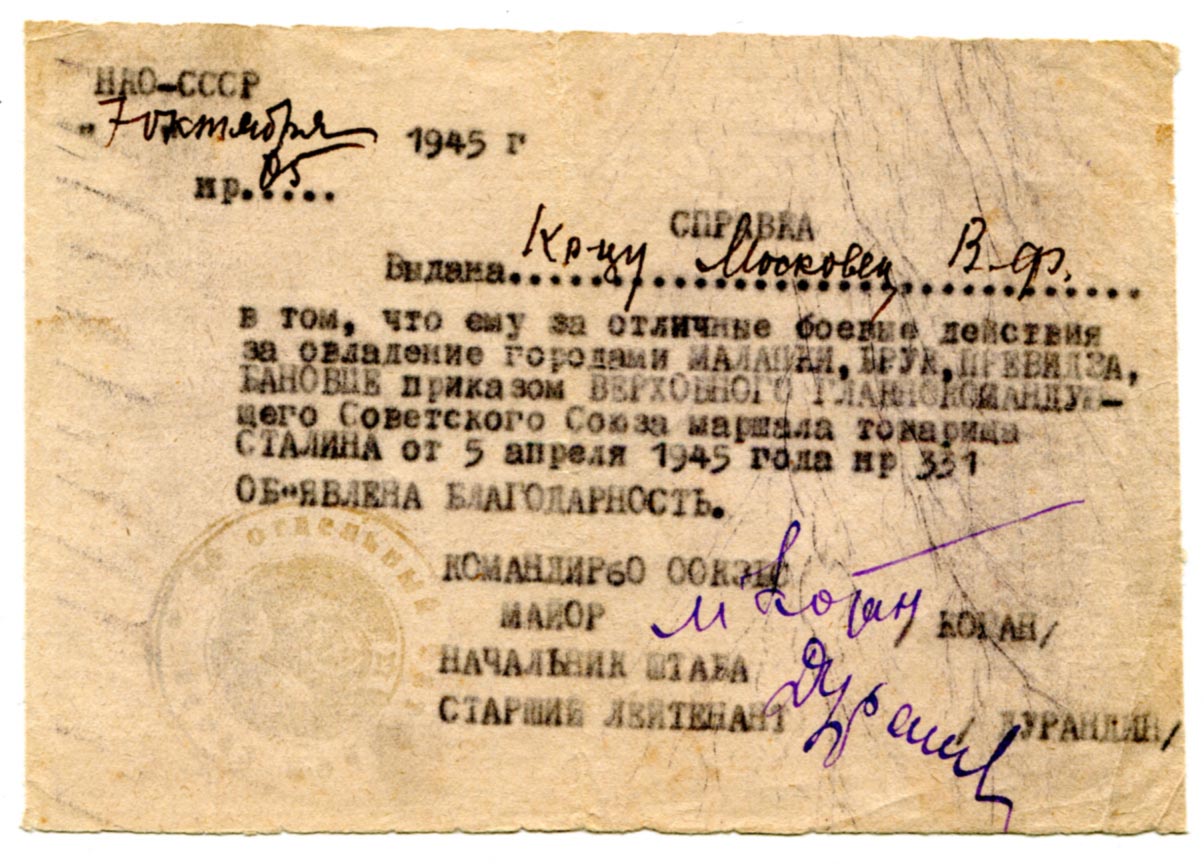 НКО-СССР
"7 октября 1945 г
нр.....85
СПРАВКА
Выдана Кр-цу Московец В.Ф.
в том, что ему за отличные боевые действия
за овладение городами МАЛАЦКИ, БРУК, ПРЕВИДЗА,
БАНОВЦЕ приказом ВЕРХОВНОГО ГЛАВНОКОМАНДУЮ-
щего Советского Союза маршала товарища
СТАЛИНА от 5 апреля 1945 года нр 331
ОБ"ЯВЛЕНА БЛАГОДАРНОСТЬ.
отдельный
КОМАНДИР 60
МАЙОР М Коган / КОГАН/
НАЧАЛЬНИК ШТАБА
СТАРШИЙ ЛЕЙТЕНАНТ / ДУРАНДИН/